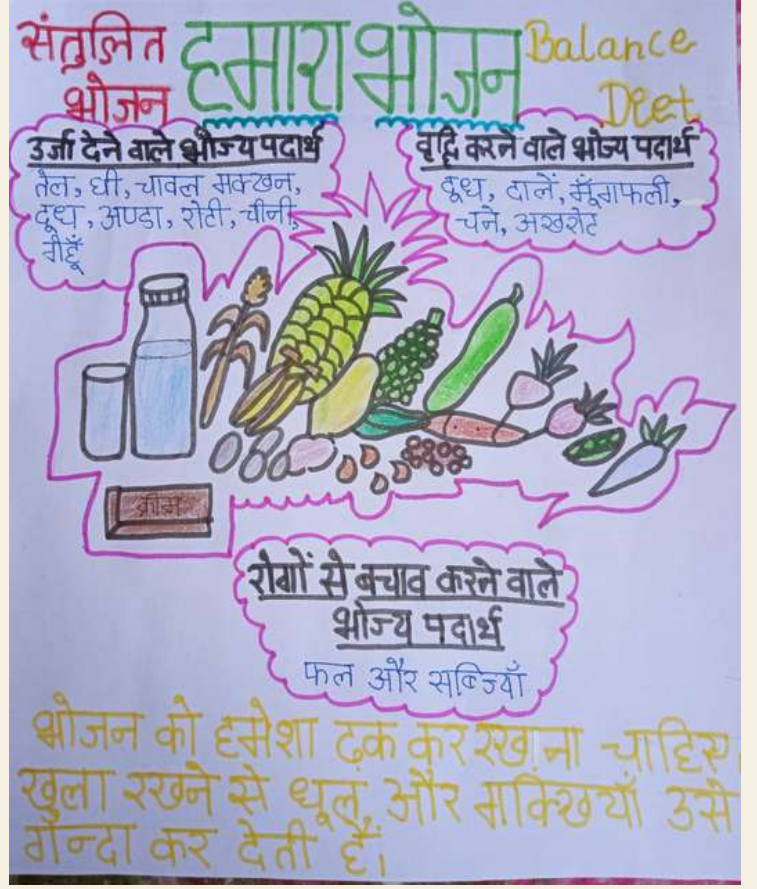 संतुलित
भोजन
हमारा भोजन
Balance
Diet
उर्जा देने वाले भोज्य पदार्थ
तेल, घी, चावल मक्खन,
दूध, अण्डा, रोटी, चीनी,
गेहूँ
वृद्धि करने वाले भोज्य पदार्थ
दूध, दालें, मूँगफली,
चने, अखरोट
क्रीम
रोगों से बचाव करने वाले
भोज्य पदार्थ
फल और सब्जियाँ
भोजन को हमेशा ढक कर रखना चाहिए।
खुला रखने से धूल, और मक्खियाँ उसे
गन्दा कर देती हैं।